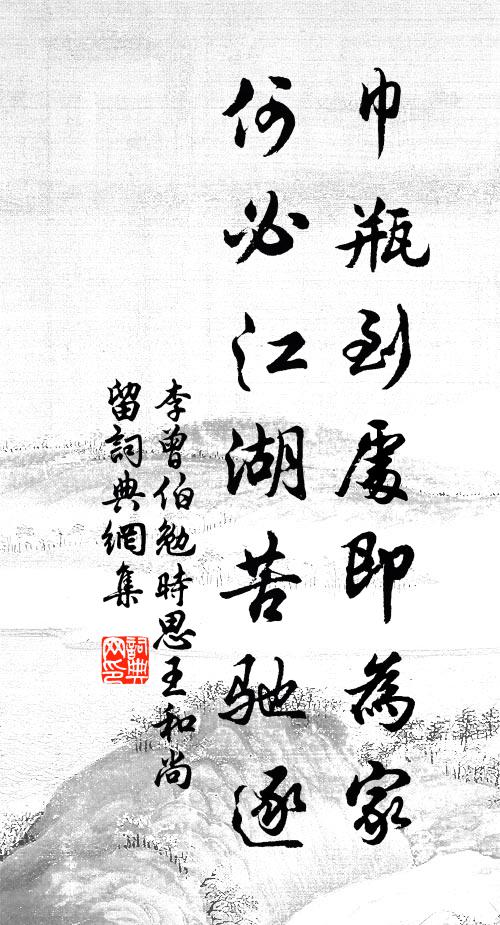 巾瓶到處即為家
何必江湖苦馳逐
李曾伯勉時思王和尚
留詞典網集
詞典
网印